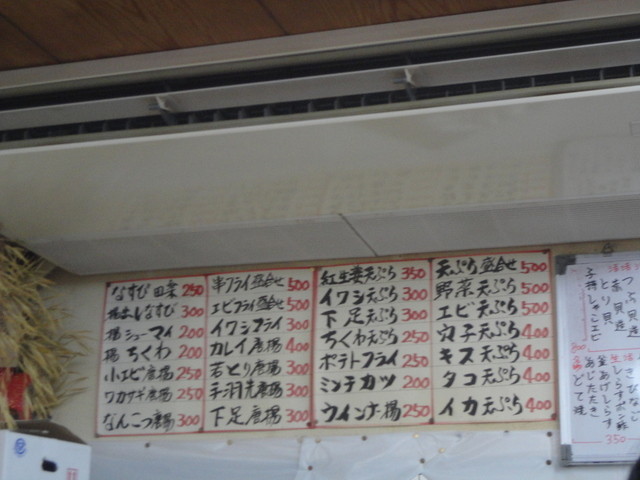 天ぷら盛合せ 500
野菜天ぷら 500
エビ天ぷら 500
穴子天ぷら 400
キス天ぷら 400
タコ天ぷら 400
イカ天ぷら 400
紅生姜天ぷら 350
イワシ天ぷら 300
下足天ぷら 300
ちくわ天ぷら 250
ポテトフライ 250
ミンチカツ 200
ウインナー揚 250
串フライ盛合せ 500
エビフライ盛合せ 500
イワシフライ 300
カレイ唐揚 400
若とり唐揚 300
手羽先唐揚 300
下足唐揚 300
なすび田楽 250
揚出しなすび 300
揚シューマイ 200
揚ちくわ 200
小エビ唐揚 250
ワカサギ唐揚 250
なんこつ唐揚 300
つぶ貝
赤貝
とり貝
子持しゃこエビ
釜あげしらす
あじたたき
どて焼
350